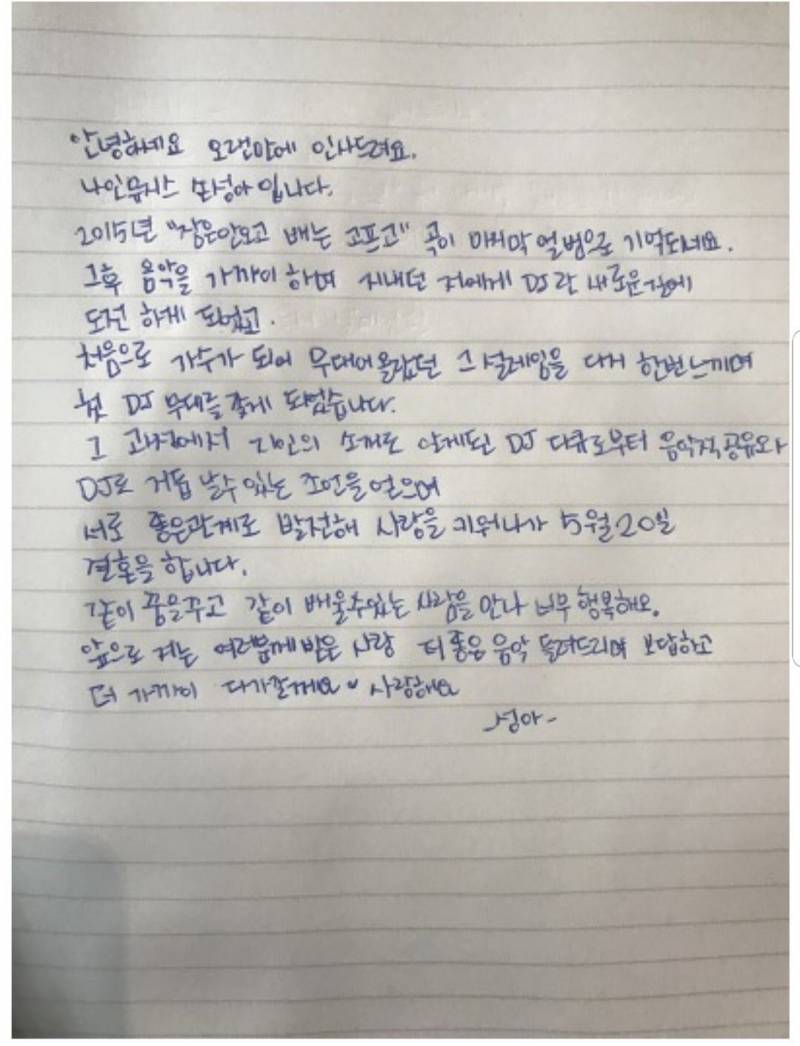 안녕하세요 오랜만에 인사드려요.
나인뮤지스 손성아 입니다.
2015년 "잠은안오고 배는 고프고" 곡이 마지막 앨범으로 기억되네요.
그후 음악을 가까이 하며 지내던 저에게 DJ란 새로운 점에
도전 하게 되었고.
처음으로 가수가 되어 무대에 올랐던 그 설레임을 다시 한번느끼며
첫 DJ 무대를 갖게 되었습니다.
그 과정에서 지인의 소개로 알게된 DJ 다큐로부터 음악적공유와
DJ로 거듭 날수 있는 조언을 얻으며
서로 좋은관계로 발전해 사랑을 키워나가 5월 20일
결혼을 합니다.
같이 꿈을꾸고 같이 배울수있는 사람을 만나 너무 행복해요.
앞으로 저는 여러분께 받은 사랑 더 좋은 음악 들려드리며 보답하고
더 가까이 다가갈께요 ♥ 사랑해요
-성아-